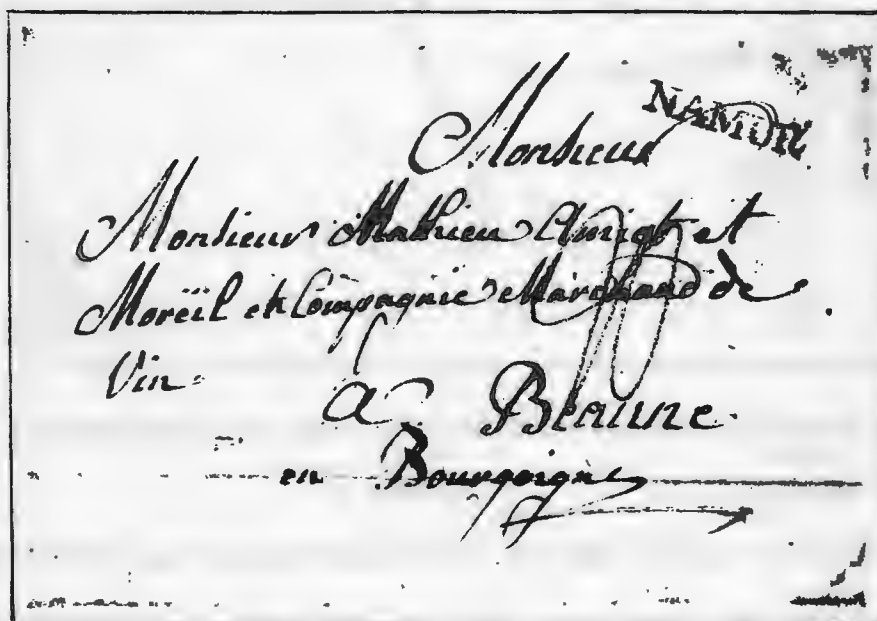 NAMUR
Monsieur
Monsieur Mathieu Amiot et
Moreïl et Compagnie Marchand de
Vin
a Beaune
en Bourgoigne